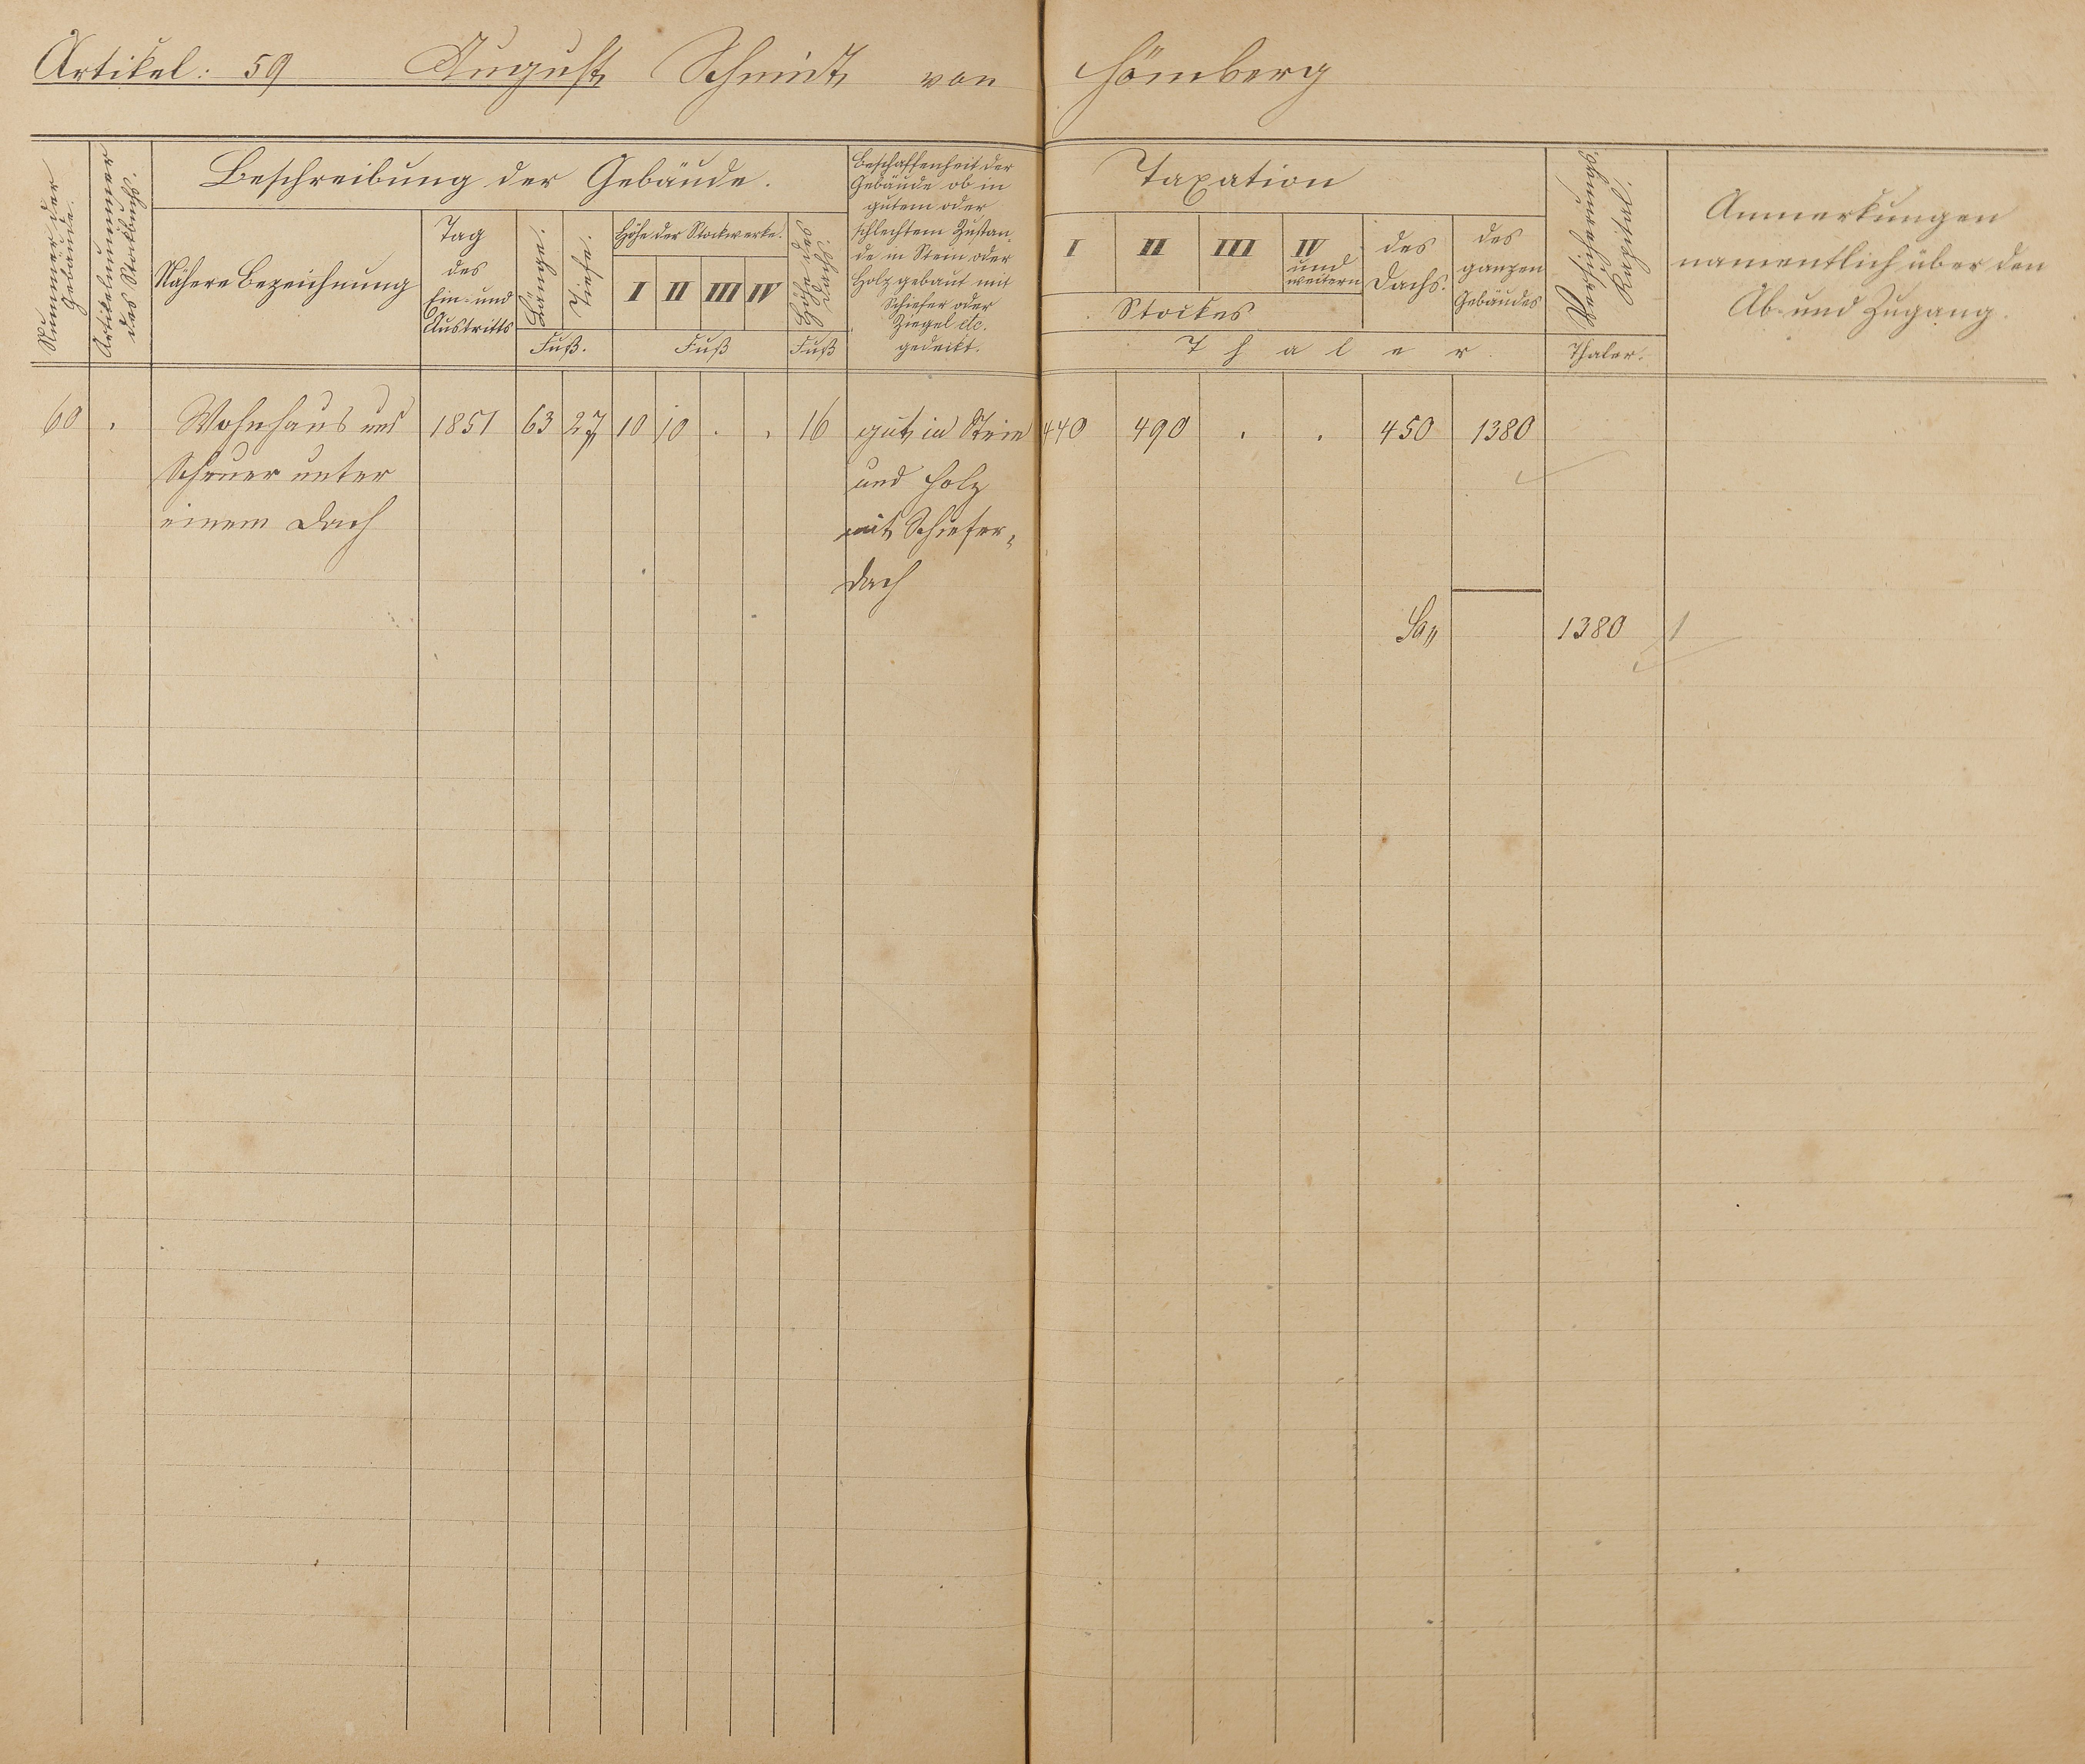 Artikel: 59 August Schmidt von Hömberg
Nummer der
Gebäude.
Artikelnummer
des Stockbuchs.
Beschreibung der Gebäude.
Nähere Bezeichnung
Tag
des
Ein- und
Austritts
Länge.
Tiefe.
Fuß.
Höhe der Stockwerke.
I II III IV
Fuß
Höhe des
Dachs.
Fuß
Beschaffenheit der
Gebäude ob in
gutem oder
schlechtem Zustan-
de in Stein oder
Holz gebaut mit
Schiefer oder
Ziegel etc.
gedeckt.
Taxation
I II III IV
und
weitern
Stockes
des
Dachs.
des
ganzen
Gebäudes
Thaler.
Versicherungs-
Kapital.
Thaler.
Anmerkungen
namentlich über den
Ab- und Zugang.
60 . Wohnhaus und 1851 63 27 10 10 . . 16 gut in Stein 440 490 . . 450 1380
Scheuer unter und Holz
einem Dach mit Schiefer-
dach
Sa 1380 1